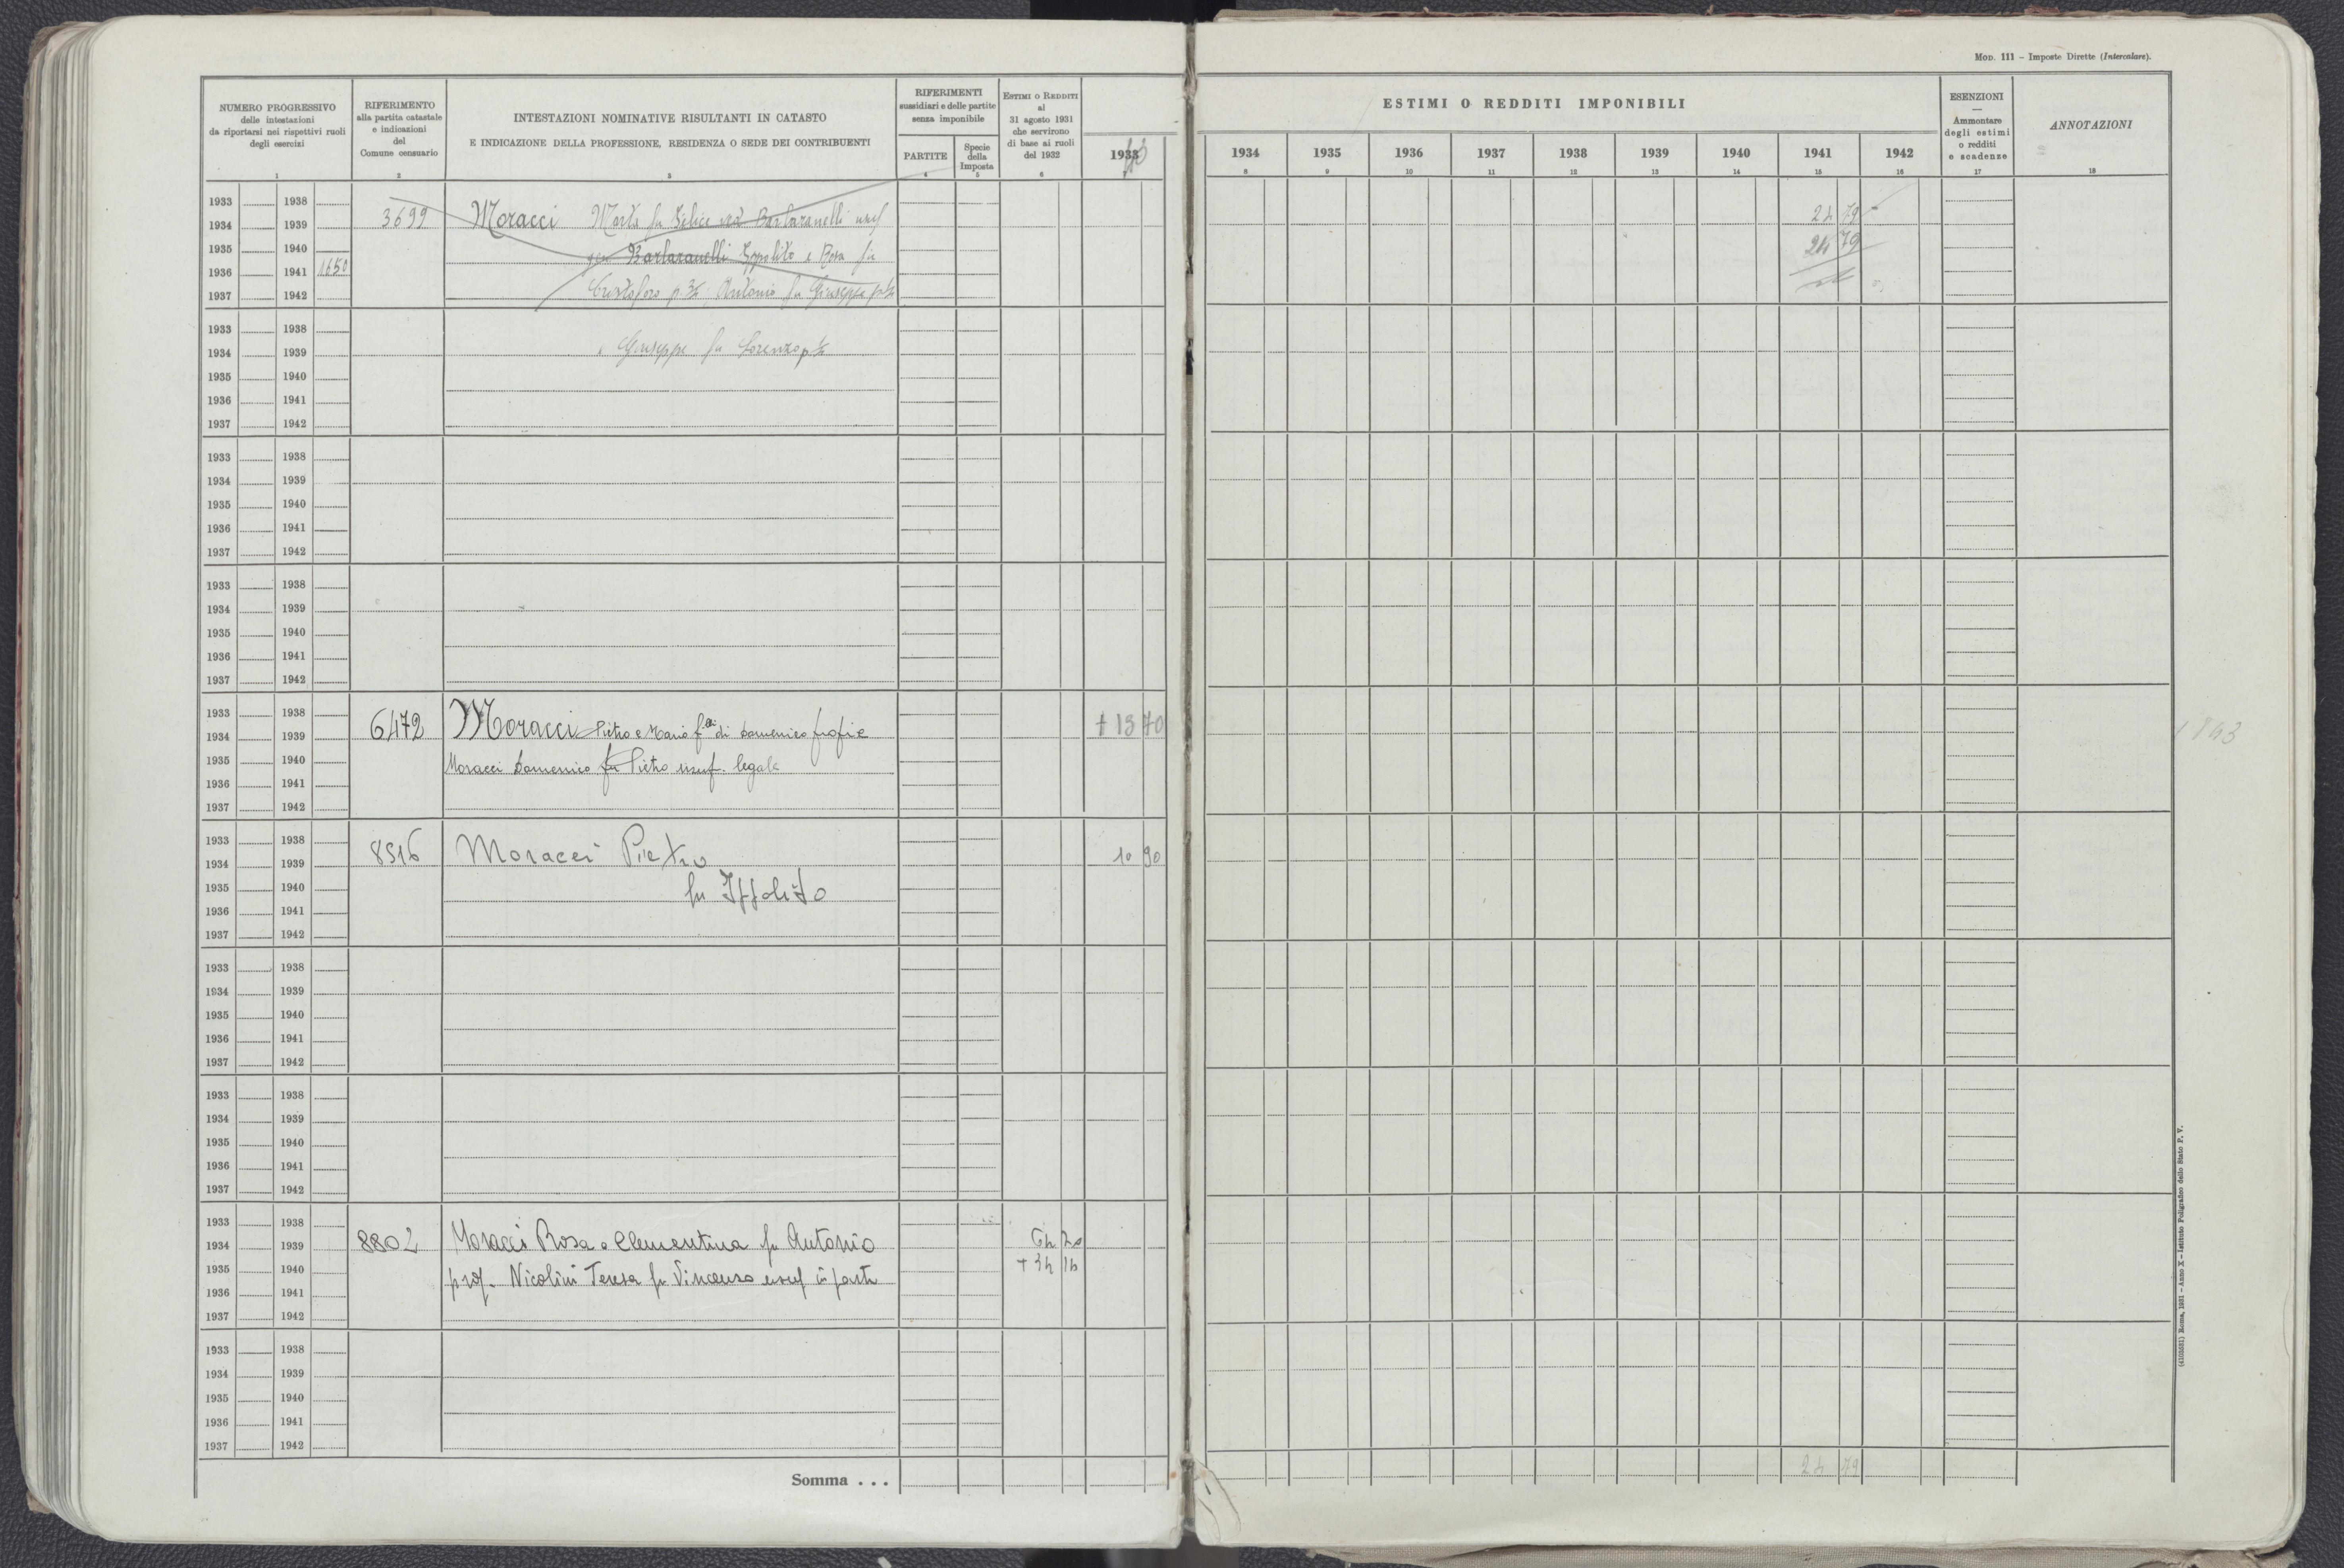 Mod. 111 – Imposte Dirette (Intercalare).
NUMERO PROGRESSIVO
delle intestazioni
da riportarsi nei rispettivi ruoli
degli esercizi
1
RIFERIMENTO
alla partita catastale
e indicazioni
del
Comune censuario
2
INTESTAZIONI NOMINATIVE RISULTANTI IN CATASTO
E INDICAZIONE DELLA PROFESSIONE, RESIDENZA O SEDE DEI CONTRIBUENTI
3
RIFERIMENTI
sussidiari e delle partite
senza imponibile
PARTITE
4
Specie
della
Imposta
5
Estimi o Redditi
al
31 agosto 1931
che servirono
di base ai ruoli
del 1932
6
ESTIMI O REDDITI IMPONIBILI
1933 1934 1935 1936 1937 1938 1939 1940 1941 1942
7 8 9 10 11 12 13 14 15 16
ESENZIONI
—
Ammontare
degli estimi
o redditi
e scadenze
17
ANNOTAZIONI
18
1933 1938
3699 Moracci Marta fu Felice ved Barbaranelli usuf 24 79
1934 1939
1935 1940
Barbaranelli Ippolito e Rosa fu 24 79
1936 1941 1650
1937 1942
Cristoforo p 3/4 Antonio fu Giuseppe
1933 1938
1934 1939
Giuseppe fu Lorenzo
1935 1940
1936 1941
1937 1942
1933 1938
1934 1939
1935 1940
1936 1941
1937 1942
1933 1938
1934 1939
1935 1940
1936 1941
1937 1942
1933 1938
1934 1939
6472 Moracci Pietro e Mario f.lli di Domenico prop.e + 13 70
1935 1940
Moracci Domenico fu Pietro usuf. legale
1936 1941
1937 1942
1933 1938
8516 Moracci Pietro 10 90
1934 1939
1935 1940
fu Ippolito
1936 1941
1937 1942
1933 1938
1934 1939
1935 1940
1936 1941
1937 1942
1933 1938
1934 1939
1935 1940
1936 1941
1937 1942
1933 1938
1934 1939
8802 Moracci Rosa e Clementina fu Antonio
1935 1940
prop. Nicolini Teresa fu Vincenzo usuf in parte
1936 1941
1937 1942
1933 1938
1934 1939
1935 1940
1936 1941
1937 1942
Somma . . . 24 79
(4103531) Roma, 1931 – Anno X – Istituto Poligrafico dello Stato P. V.